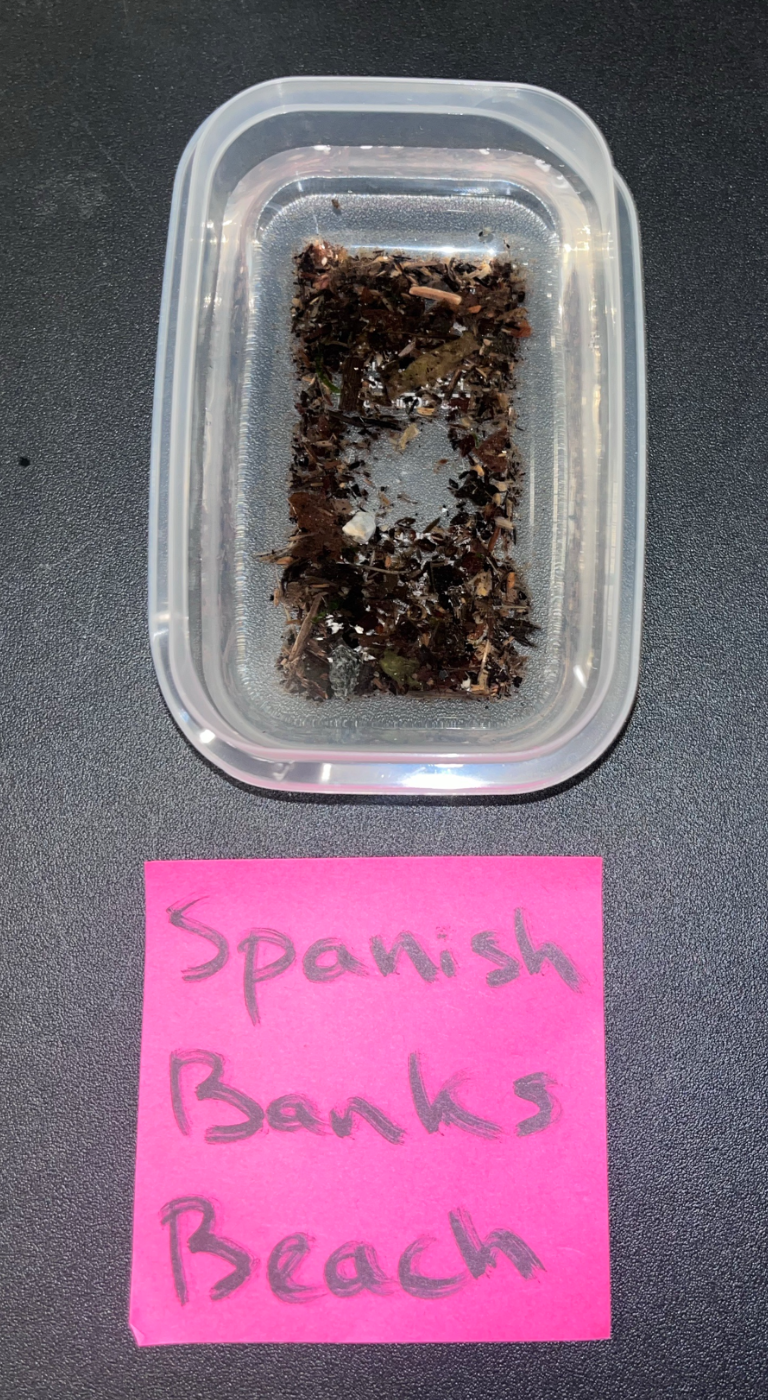 Spanish
Banks
Beach